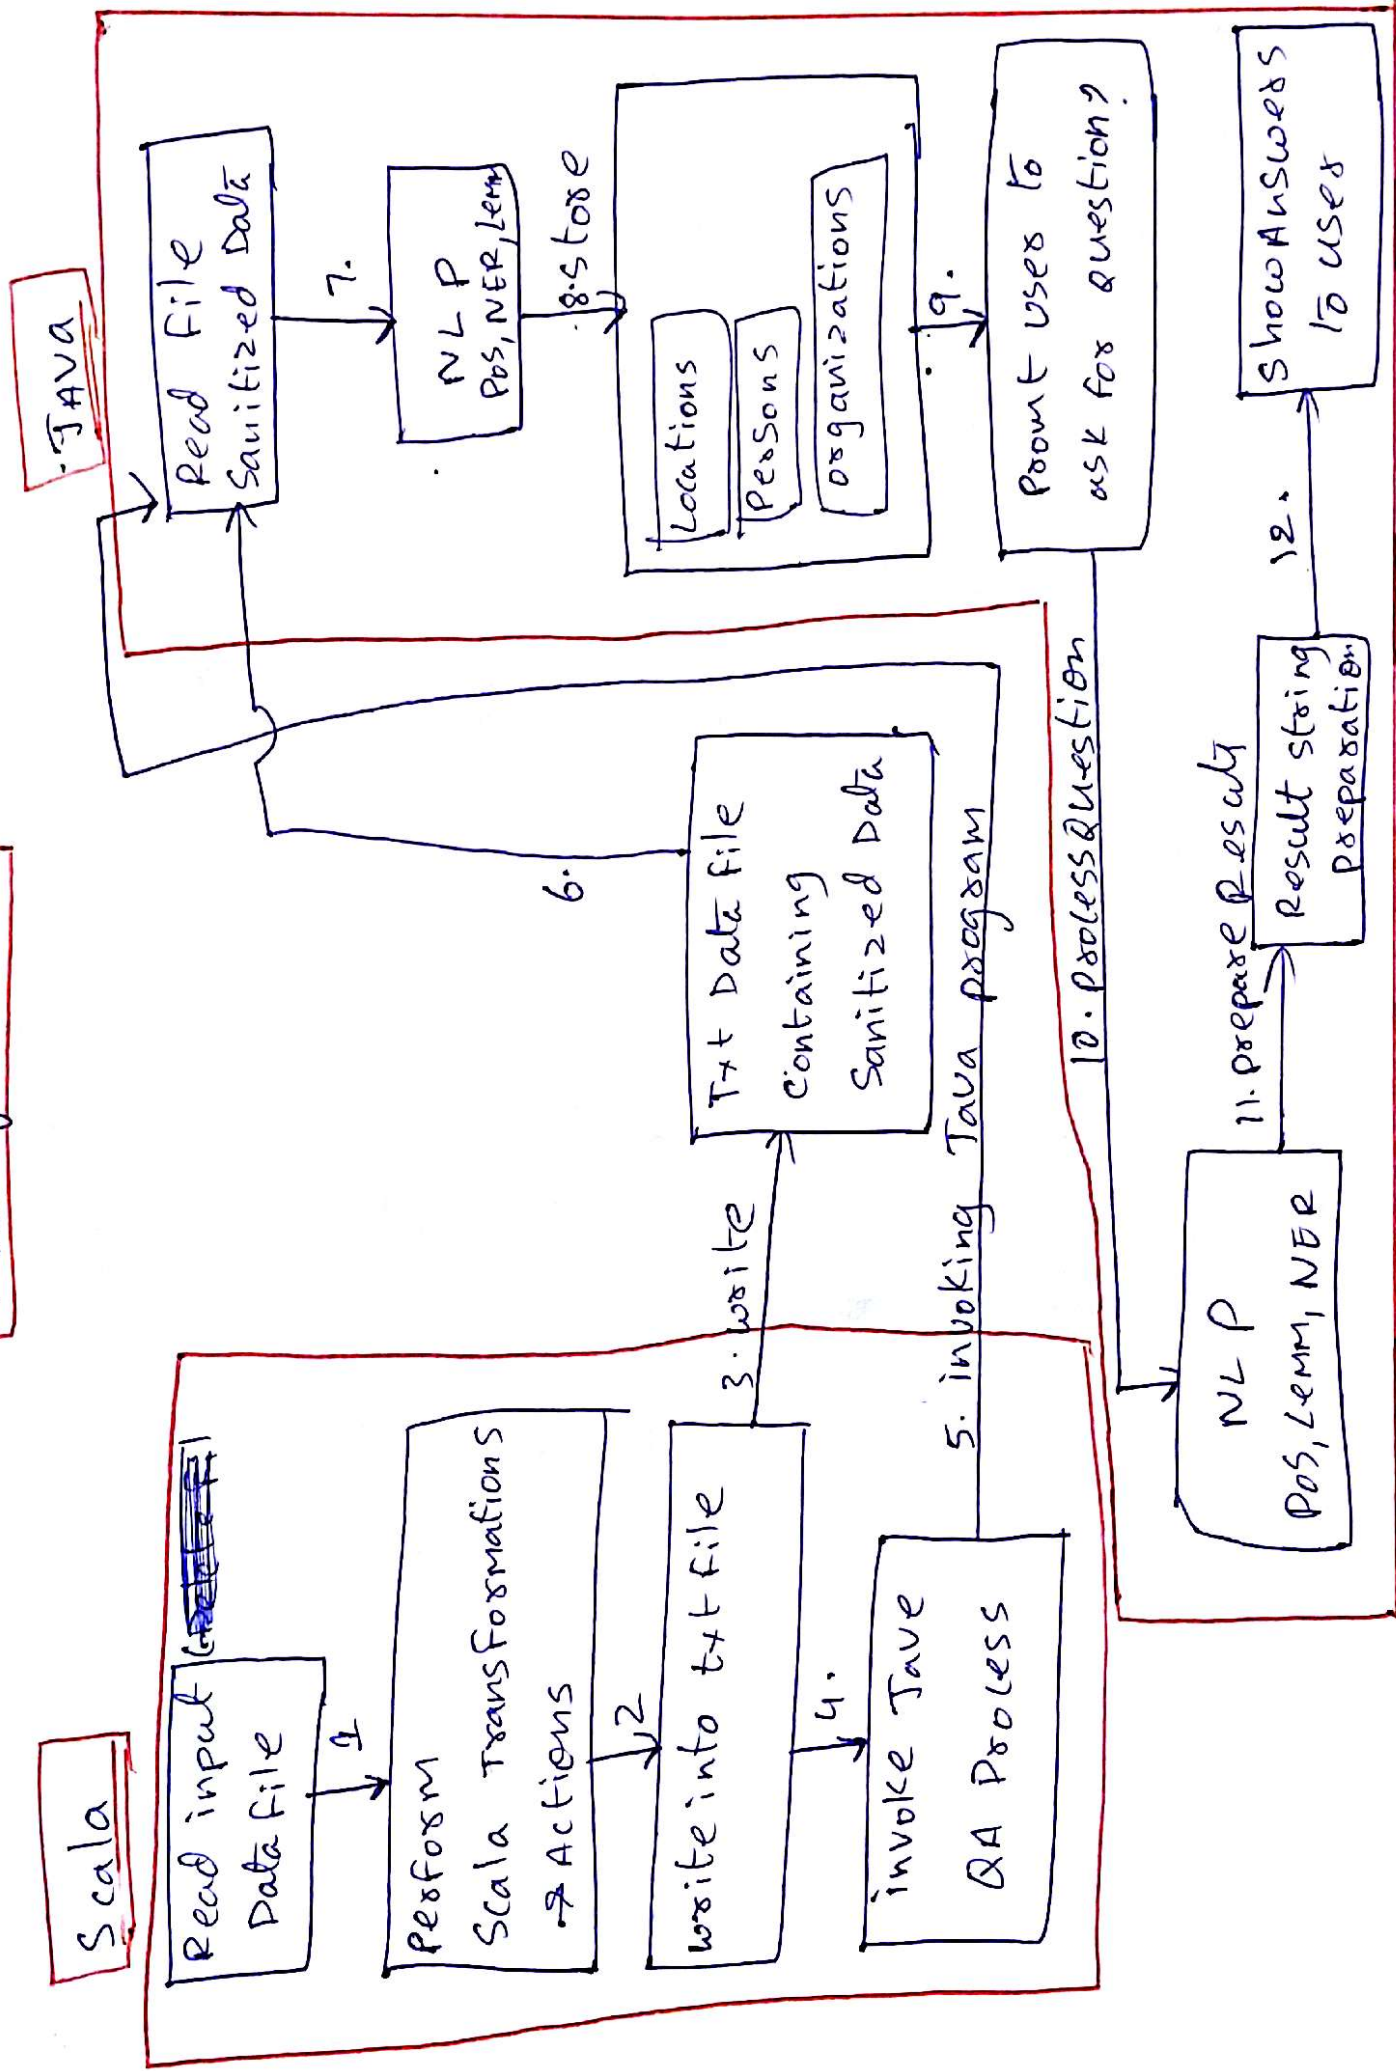 Scala
Read input
Data file
1
Perform
Scala Transformations
& Actions
2
write into txt file
3. write
4.
invoke Jave
QA Process
5. invoking Java program
Txt Data file
Containing
Sanitized Data
6.
JAVA
Read file
Sanitized Data
7.
NLP
POS, NER, Lemm
8. store
Locations
Persons
organizations
9.
Promt user to
ask for question?
10. processQuestion
NLP
POS, Lemm, NER
11. prepare Result
Result string
preparation
12.
show Answers
to user